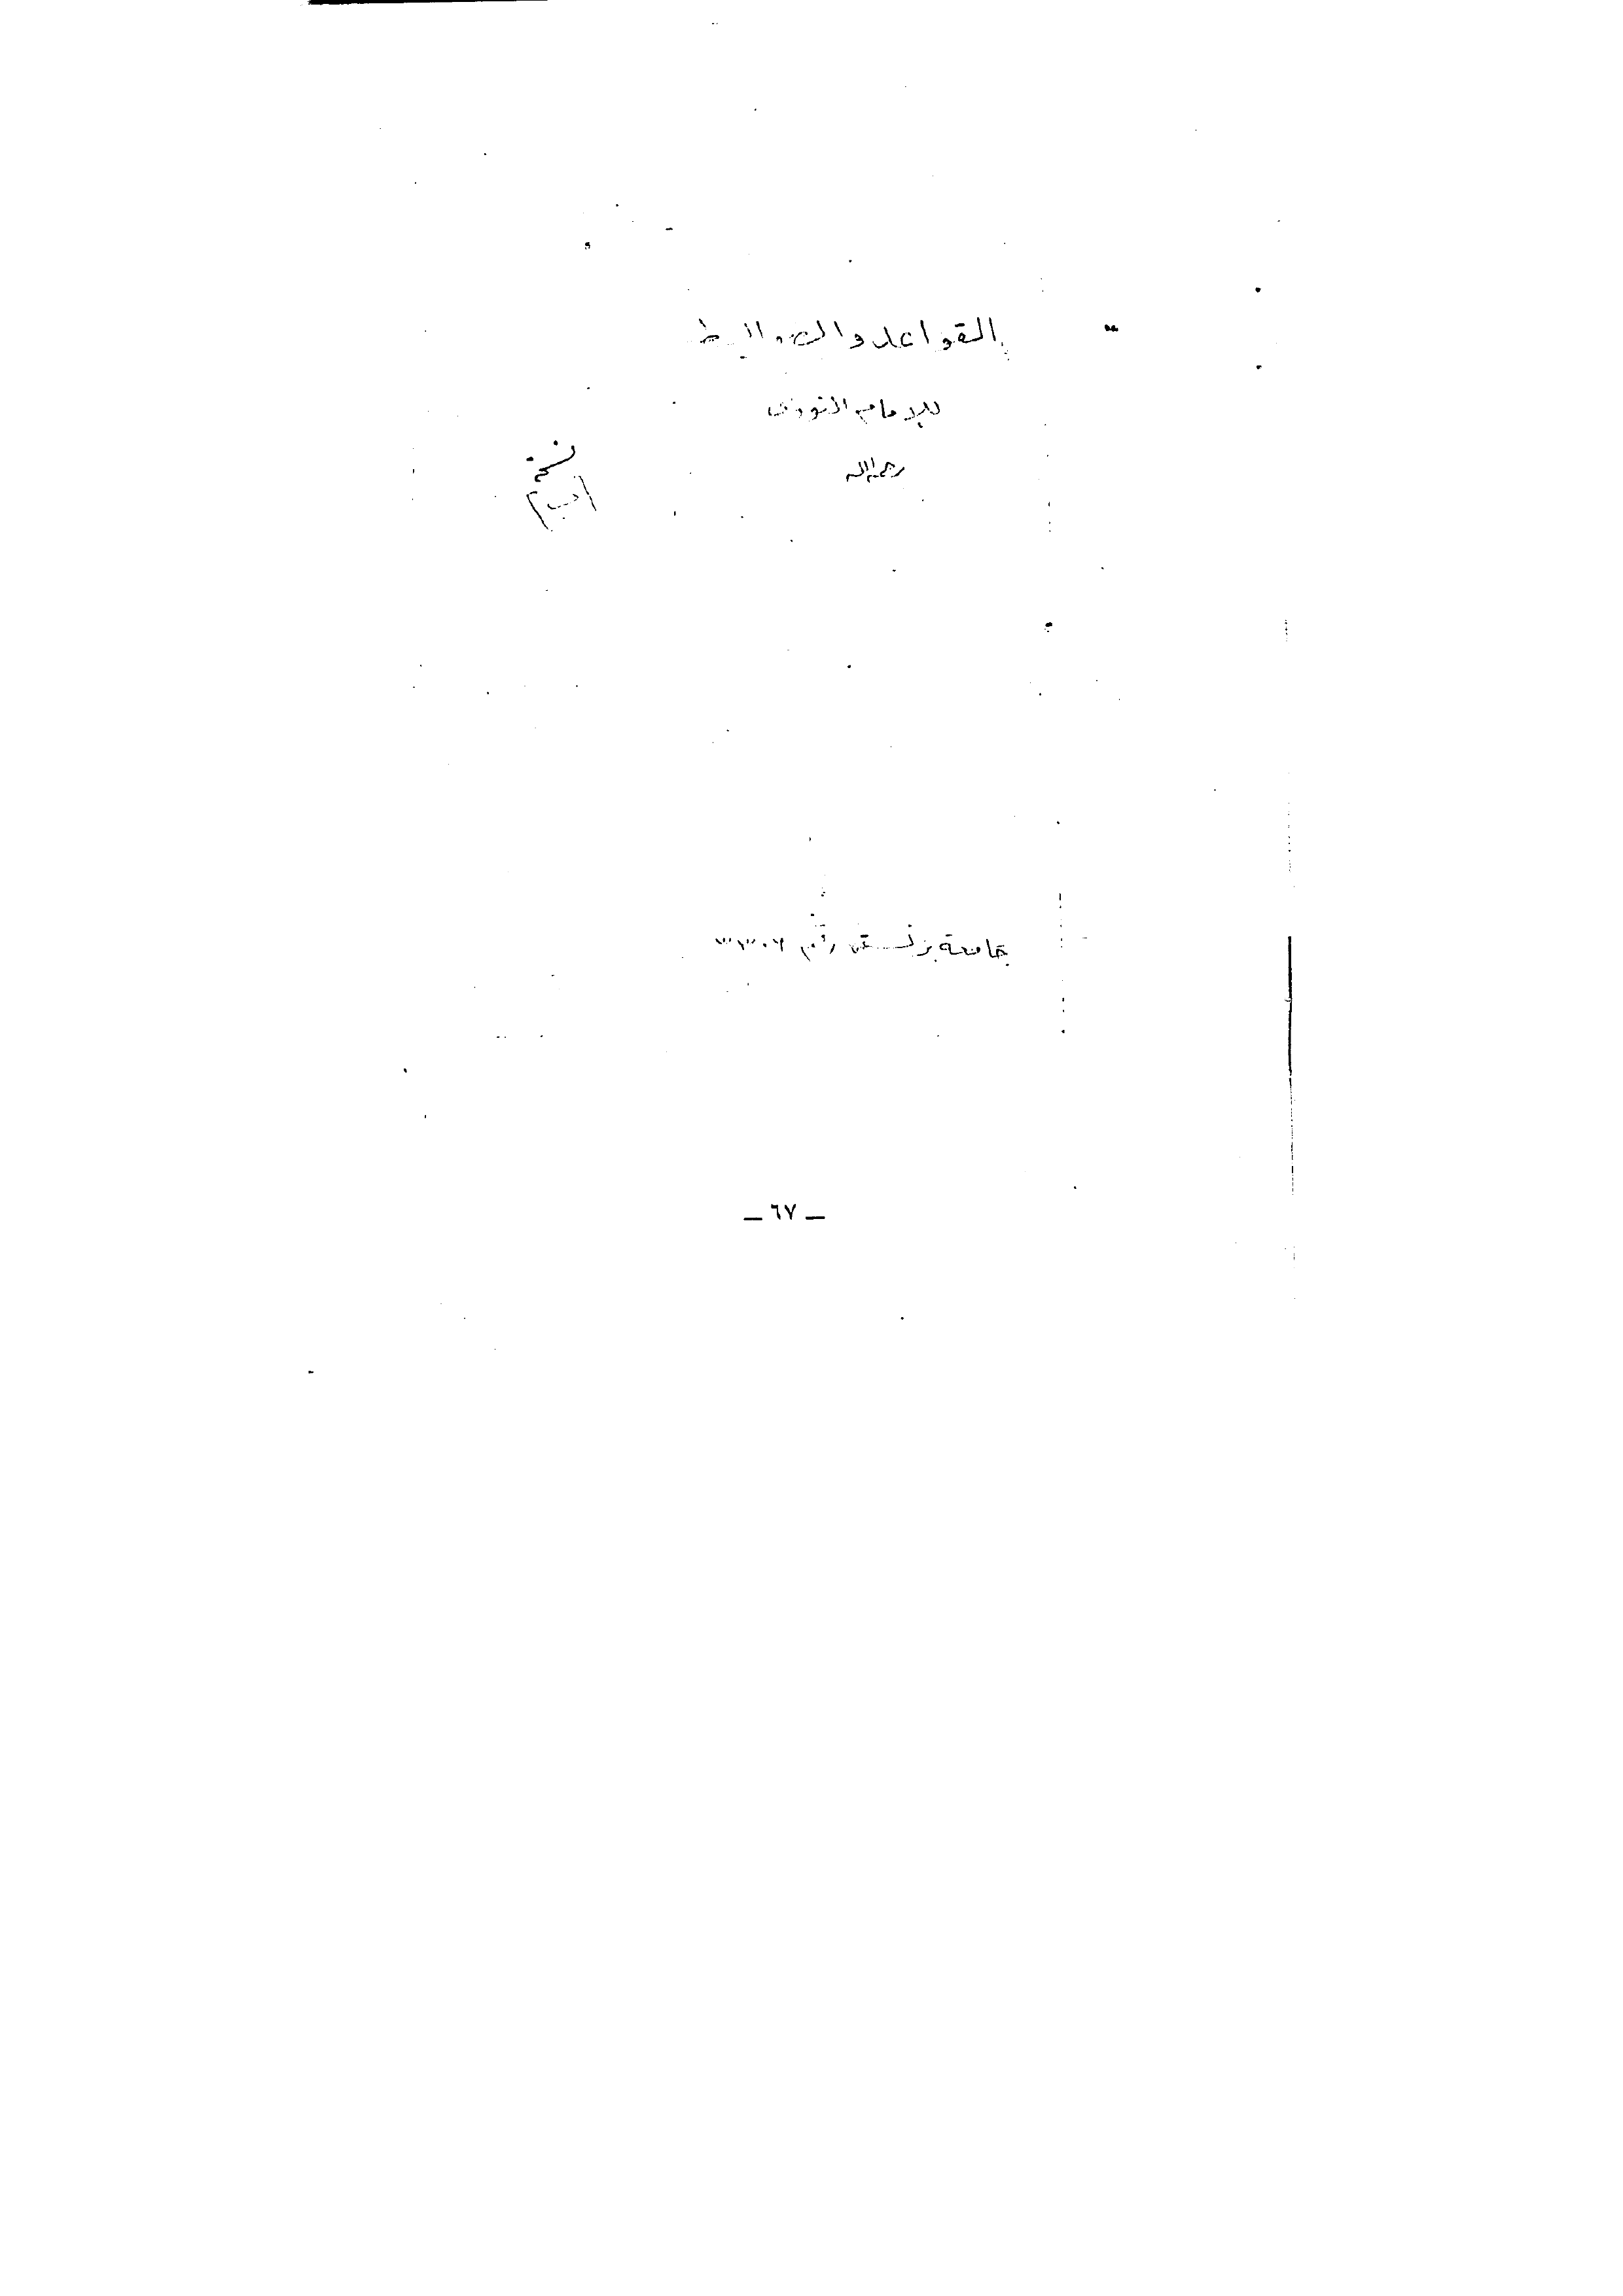 القواعد والضوابط
للإمام النووى
رحمه الله
نسخة
جامعة برنستن رقم
— ٦٧ —